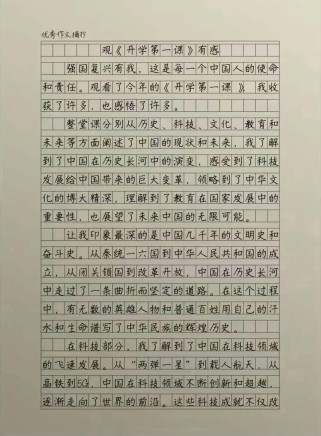 优秀作文摘抄
观《开学第一课》有感
强国复兴有我，这是每一个中国人的使命
和责任。观看了今年的《开学第一课》，我收
获了许多，也感悟了许多。
整堂课分别从历史、科技、文化、教育和
未来等方面阐述了中国的现状和未来，我了解
到了中国在历史长河中的演变，感受到了科技
发展给中国带来的巨大变革，领略到了中华文
化的博大精深，理解到了教育在国家发展中的
重要性，也展望了未来中国的无限可能。
让我印象最深的是中国几千年的文明史和
奋斗史。从秦统一六国到中华人民共和国的成
立，从闭关锁国到改革开放，中国在历史长河
中走过了一条曲折而坚定的道路。在这个过程
中，有无数的英雄人物和普通百姓用自己的汗
水和生命谱写了中华民族的辉煌历史。
在科技部分，我了解到了中国在科技领域
的飞速发展。从“两弹一星”到载人航天、从
高铁到5G，中国在科技领域不断创新和超越，
逐渐走向了世界的前沿。这些科技成就不仅改